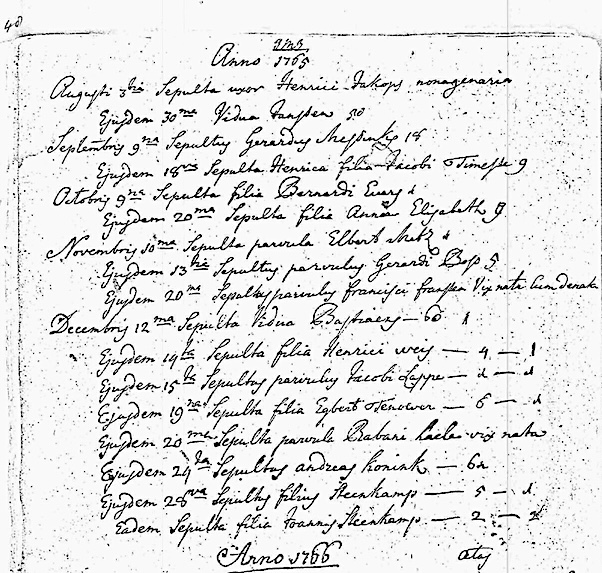 48
Anno 1765
Augusti 3tia Sepulta uxor Henrici Jakops nonagenaria
Ejusdem 30ma Vidua Janssen 50
Septembris 9na Sepultus Gerardus 18
Ejusdem 18va Sepulta Henrica filia Jacobi Timesse 9
Octobris 9na Sepulta filia Bernardi Evers
Ejusdem 20ma Sepulta filia Annæ Elisabeth
Novembris 10ma Sepulta parvula Elbert
Ejusdem 13tia Sepultus parvulus Gerardi Bos 5
Ejusdem 20ma Sepultus parvulus Francisci Franssen Vix nata
Decembris 12ma Sepulta Vidua Bastiaens — 60
Ejusdem 14ta Sepulta filia Henrici weijs — 4 — 1
Ejusdem 15ta Sepultus parvulus Jacobi Lappe —
Ejusdem 19na Sepulta filia Egbert — 6 —
Ejusdem 20ma Sepulta parvula vix nata
Ejusdem 24ta Sepultus andreas konink —
Ejusdem 28va Sepultus filius Steenkamp — 5 —
Eadem Sepulta filia Joannis Steenkamp — 2 — 2
Anno 1766